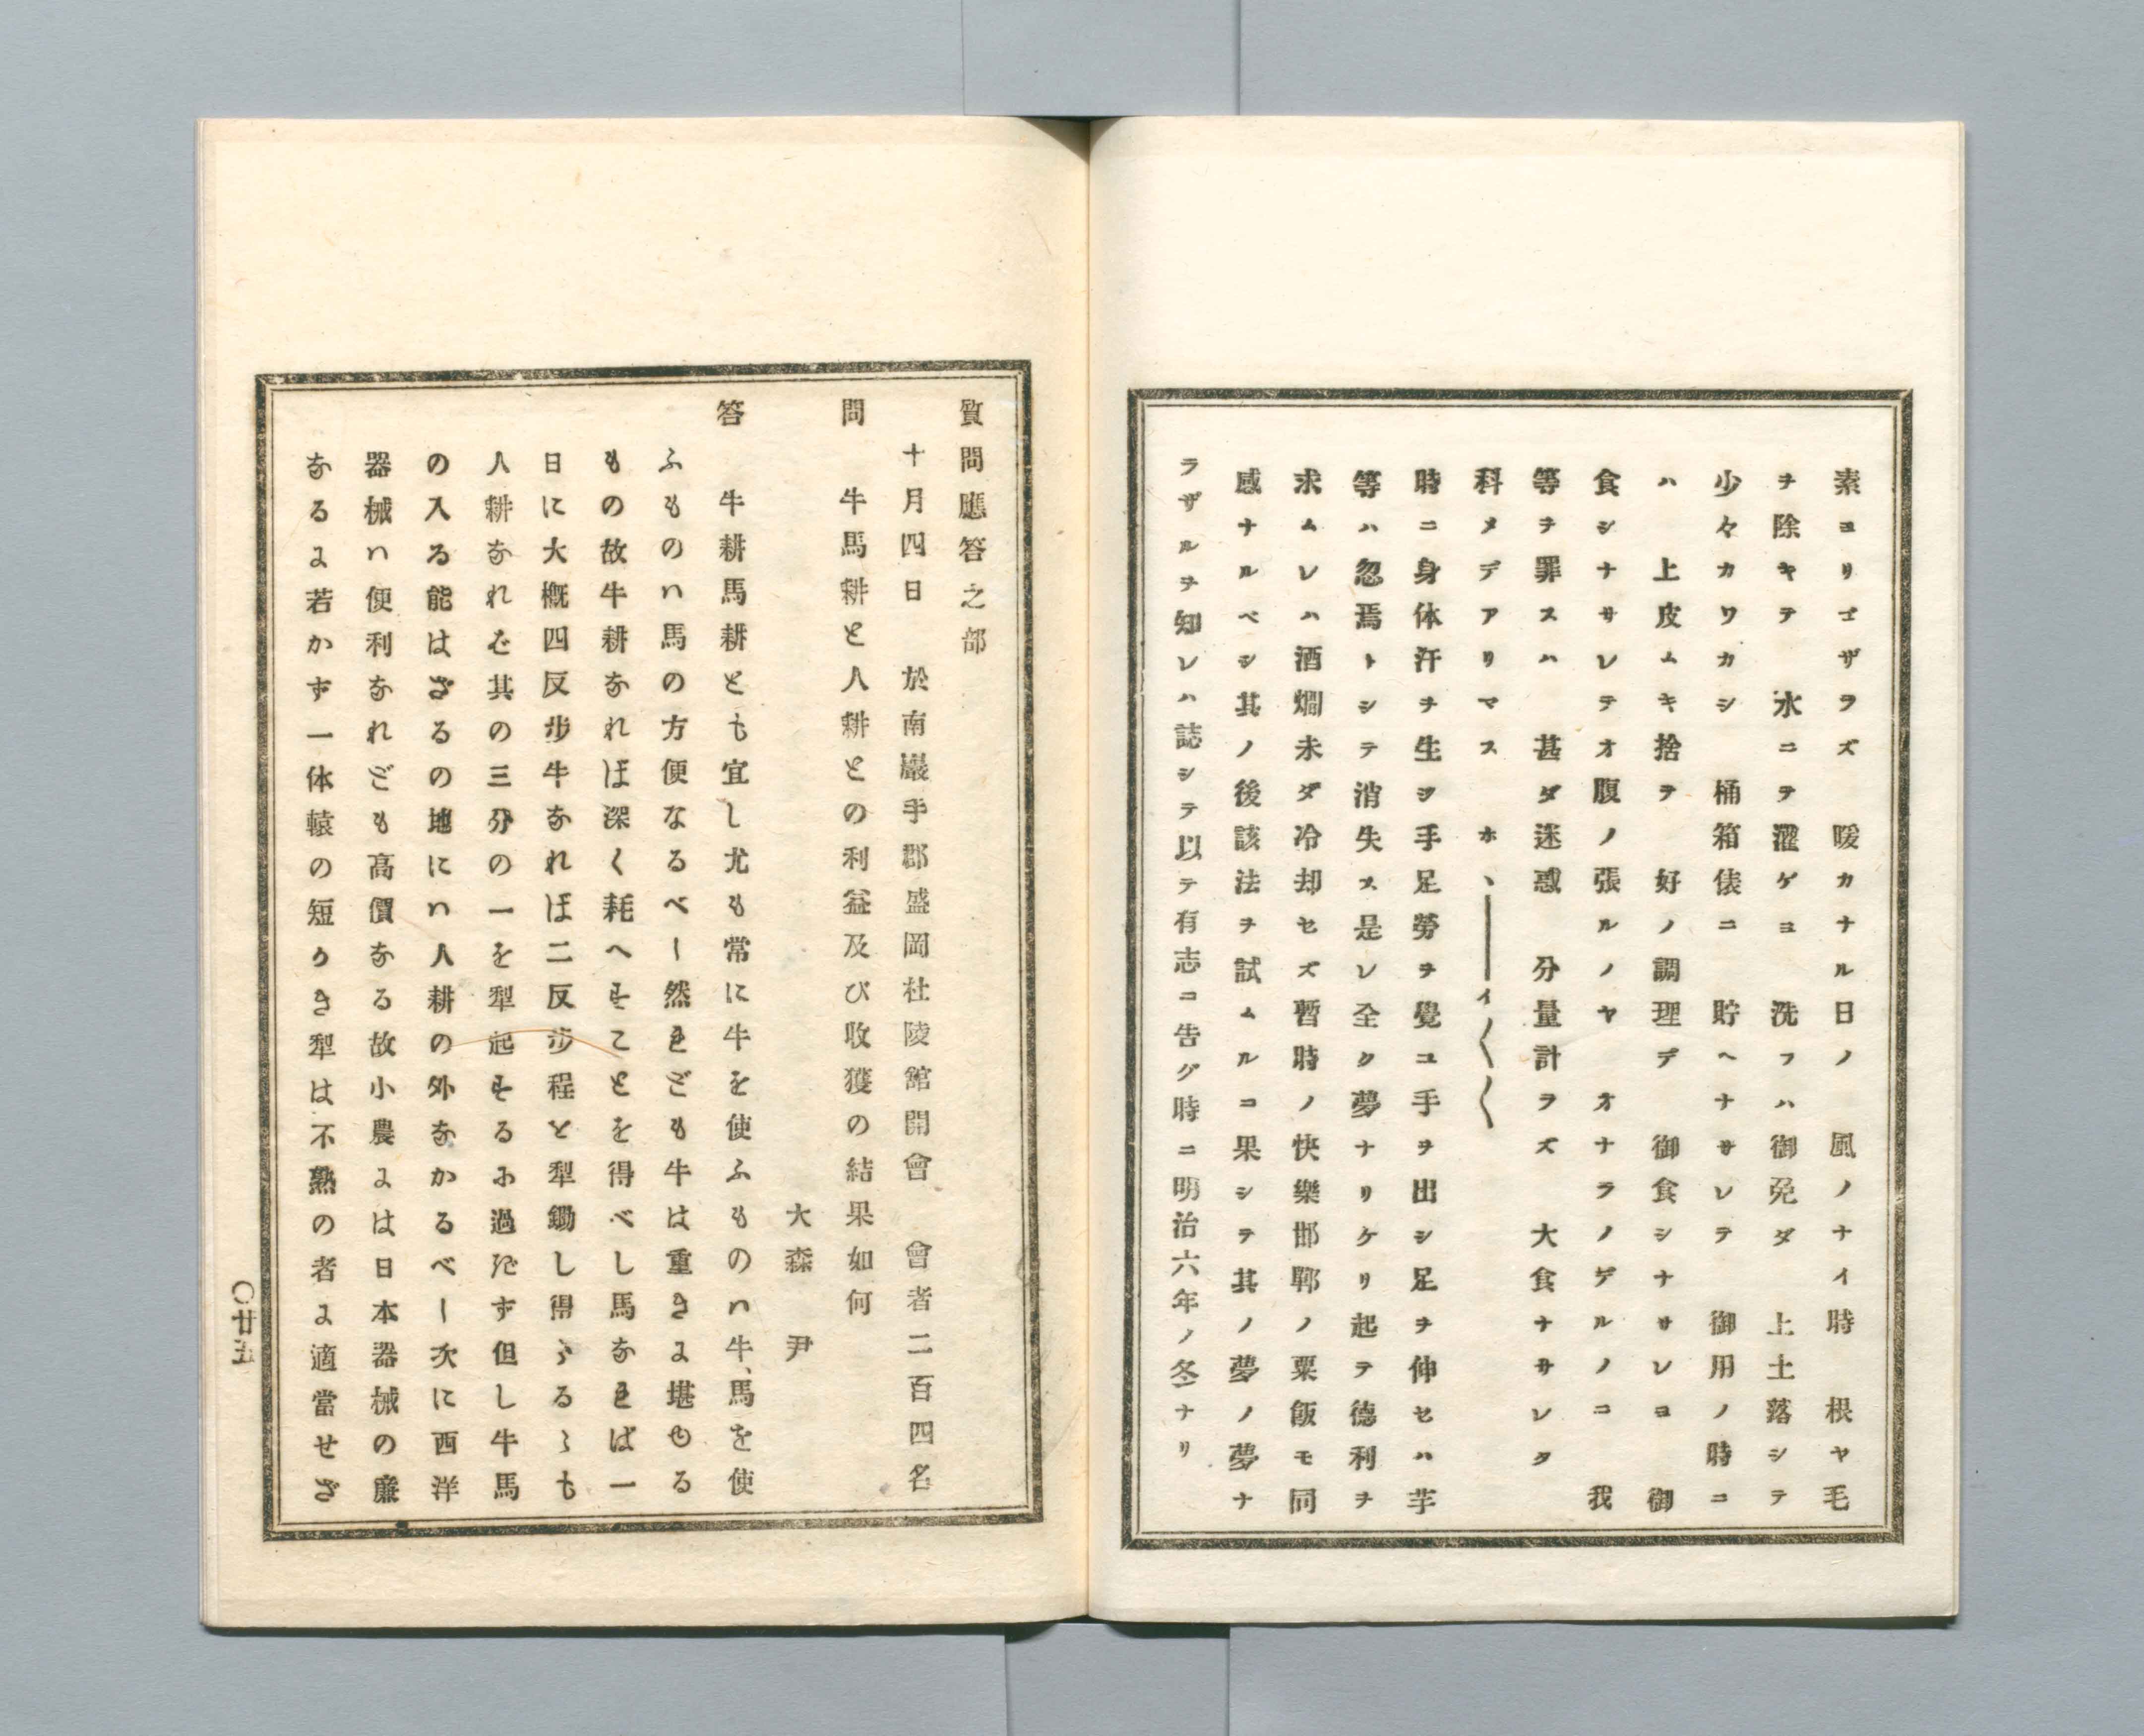 素ヨリゴザラズ　暖カナル日ノ　風ノナイ時　根ヤ毛
ヲ除キテ　水ニテ濯ゲヨ　洗フハ御免ダ　上土落シテ
少々カワカシ　桶箱俵ニ　貯ヘナサレテ　御用ノ時コ
ハ　上皮ムキ捨ヲ　好ノ調理デ　御食シナサレヨ　御
食シナサレテオ腹ノ張ルノヤ　オナラノゲルノコ　我
等ヲ罪スハ　甚ダ迷惑　分量計ラズ　大食ナサレタ
科メデアリマス　ホヽ――イ〱〱
時ニ身体汗ヲ生ジ手足勞ヲ覺ユ手ヲ出シ足ヲ伸セハ芋
等ハ忽焉トシテ消失ス是レ全ク夢ナリケリ起テ德利ヲ
求ムレハ酒爛未ダ冷却セズ暫時ノ快樂邯鄲ノ粟飯モ同
感ナルベシ其ノ後該法ヲ試ムルコ果シテ其ノ夢ノ夢ナ
ラザルヲ知レハ誌シテ以テ有志コ告グ時ニ明治六年ノ冬ナリ
質問應答之部
十月四日　於南巖手郡盛岡杜陵舘開會　會者二百四名
問　牛馬耕と人耕との利益及び收獲の結果如何
大森　尹
答　牛耕馬耕とも宜し尤も常に牛を使ふものハ牛、馬を使
ふものハ馬の方便なるべし然れども牛は重きに堪もる
もの故牛耕なれば深く耗へすことを得べし馬なれば一
日に大概四反歩牛なれば二反歩程と犁鋤し得らるゝも
人耕なれば其の三分の一を犁起するに過だず但し牛馬
の入る能はざるの地にハ人耕の外なかるべし次に西洋
器械ハ便利なれども高價なる故小農には日本器械の廉
なるに若かず一体轅の短かき犁は不熟の者に適當せざ
〇廿五